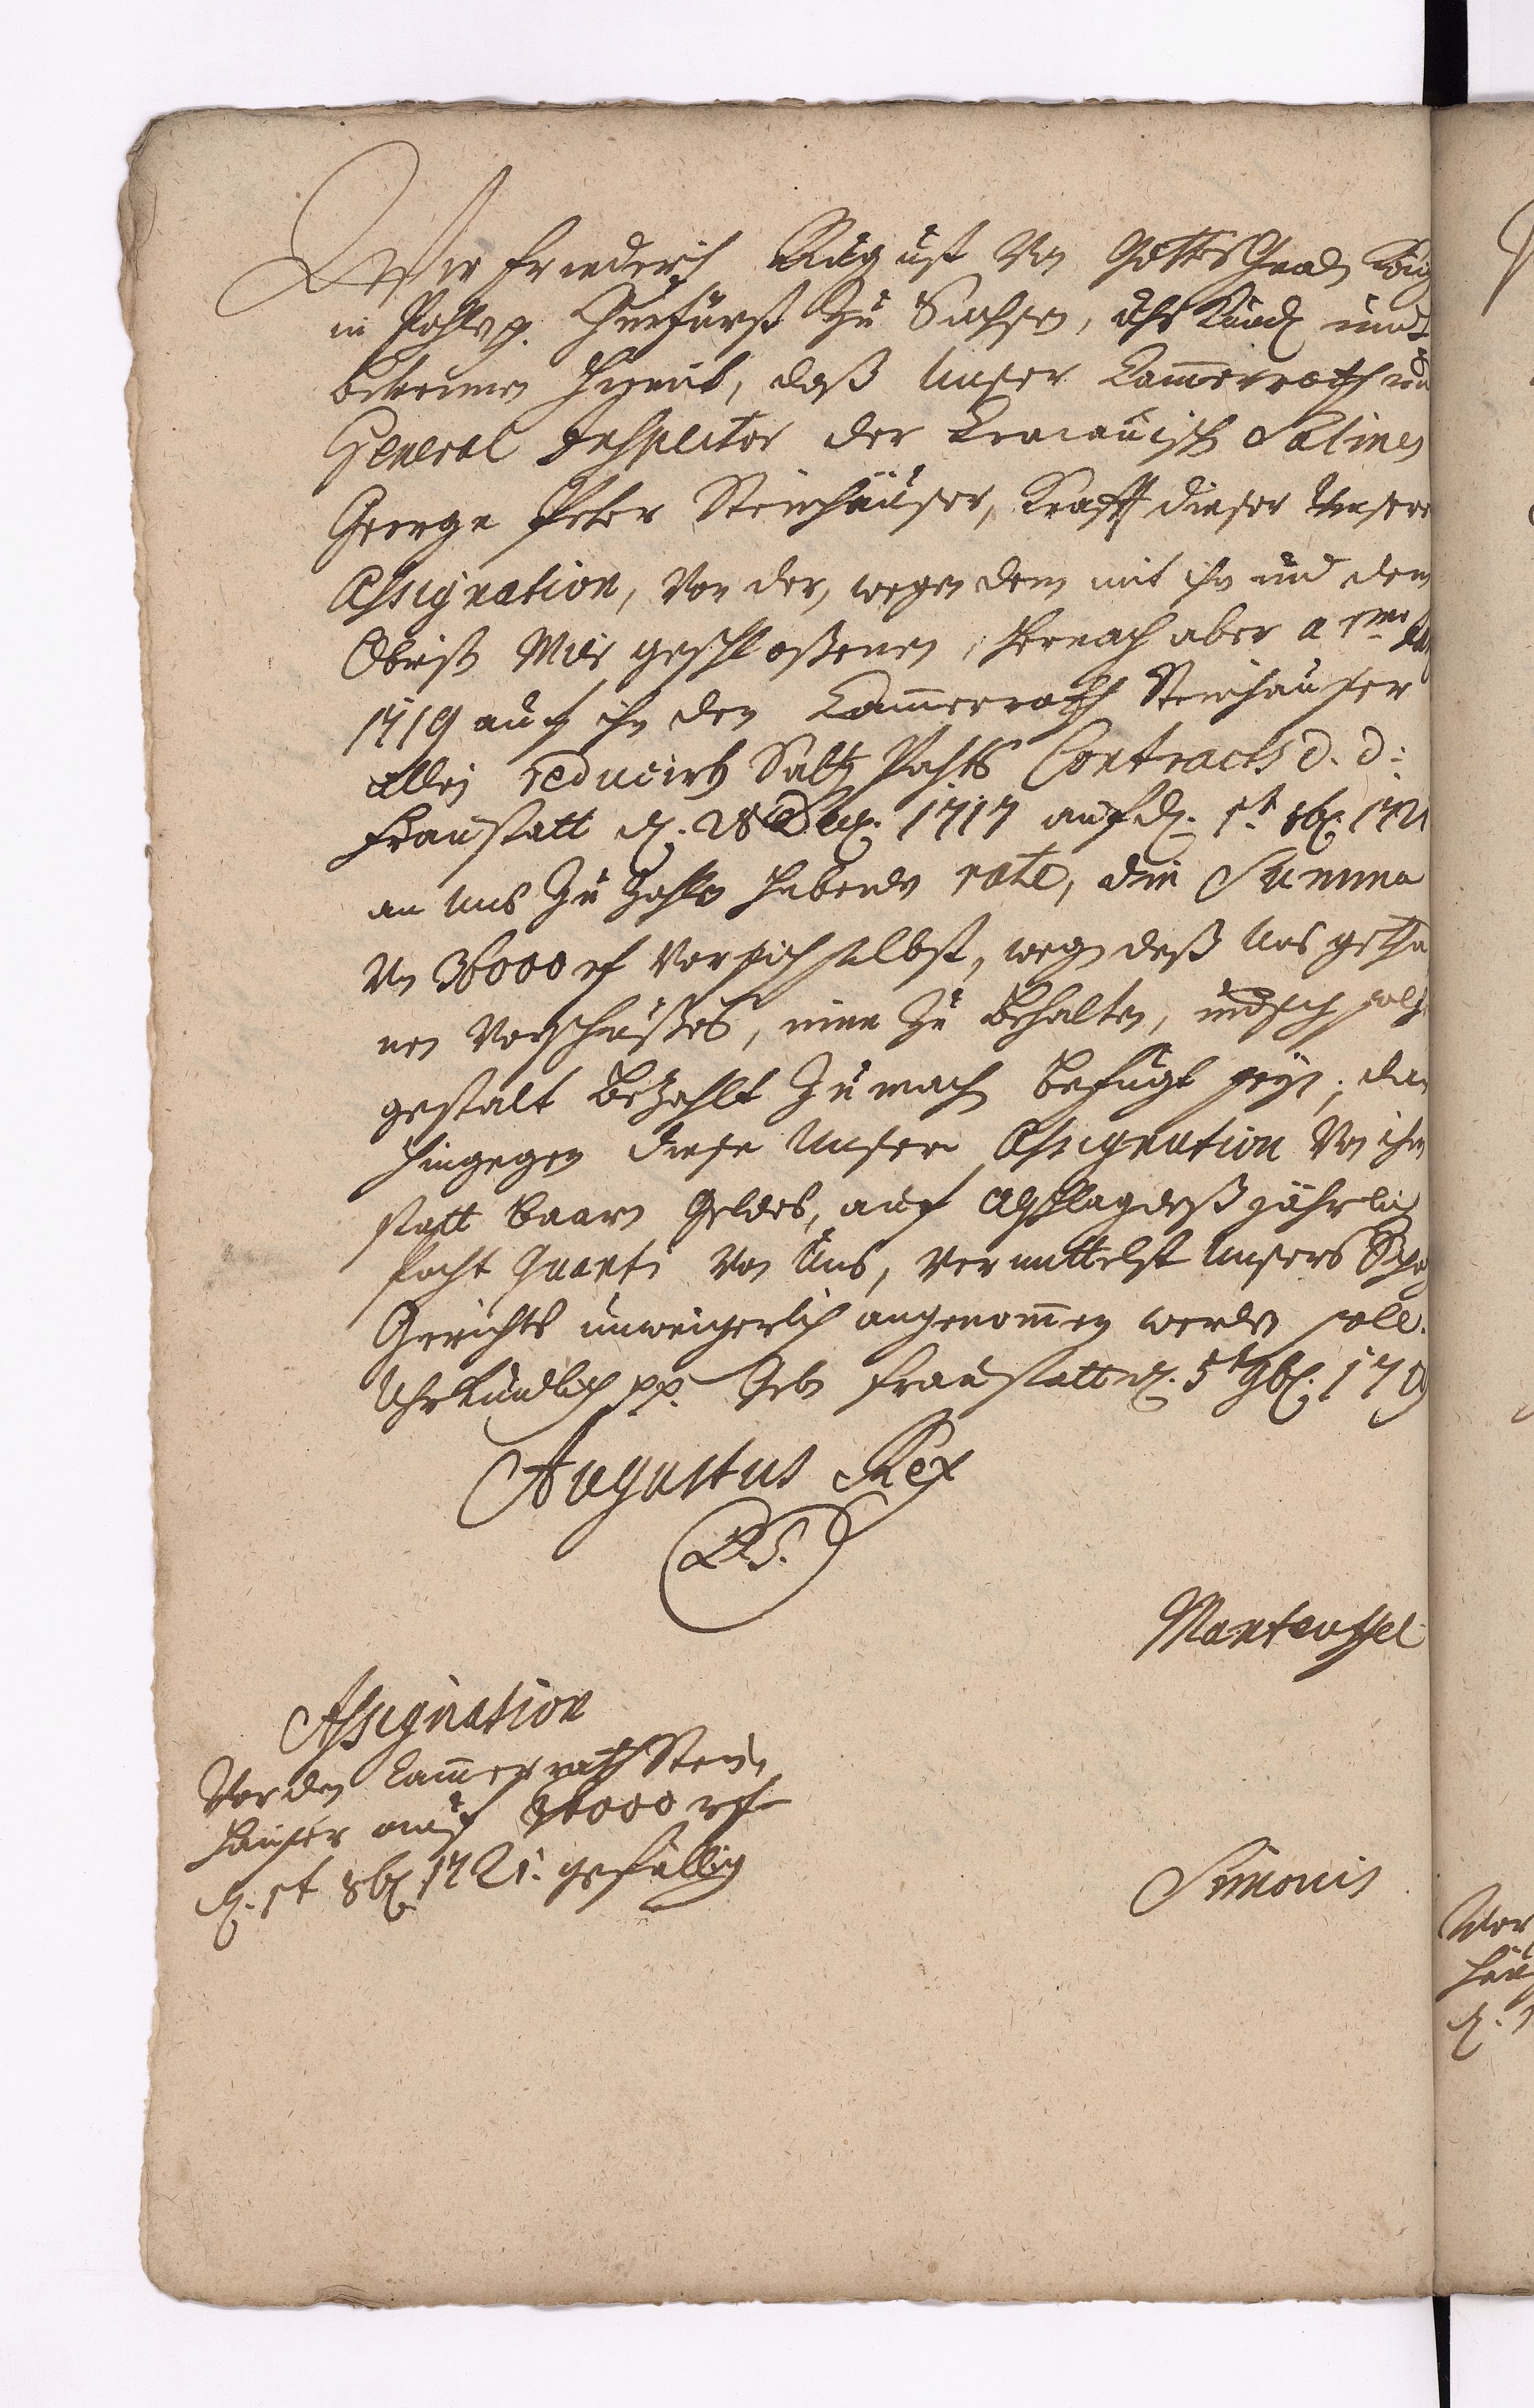 Wir Friederich August Von Gottes Gnaden König
in Pohlen p. Churfürst Zu Sachsen, Uhrkunden und
bekennen hiermit, daß Unser Cammerrath und
General Inspector der Cracauisch Salinen
George Peter Steinhäuser, Krafft dieser Unsere
Assignation, Von der, wegen dem mit ihn und dem
Obrist Mier geschloßenen, hernach aber a 1mo
1719 auf ihn den Cammerrath Steinhäuser
allein reducirten Saltz Pachts Contracts d. d:
Fraustatt d. 28 Dec. 1717 auf d. 1t 8br. 1721
an Uns Zu Zahlen habende rate, die Summa
Von 36000 rf Vor sich selbst, wegen deß Uns getha
nen Vorschußes, inne Zu Behalten, und sich solcher
gestalt Bezahlt Zu machen Befugt seyn; da
hingegen diese Unsere Assignation Von ihm
statt Baaren Geldes, auf Abschlag deß jährlich
Pacht Quanti Von Uns, Vermittelst Unsers
Gerichts unweigerlich angenommen werden soll.
Uhrkundlich pp. Geben Fraustatt d. 5t 9br. 1719
Augustus Rex
L.S.
Manteuffel
Assignation
Vor den Cammerrath Stein,
häuser auf 36000 rf
d. 1t 8br. 1721. gefällig
Simonis
Vor
häu
d. 1